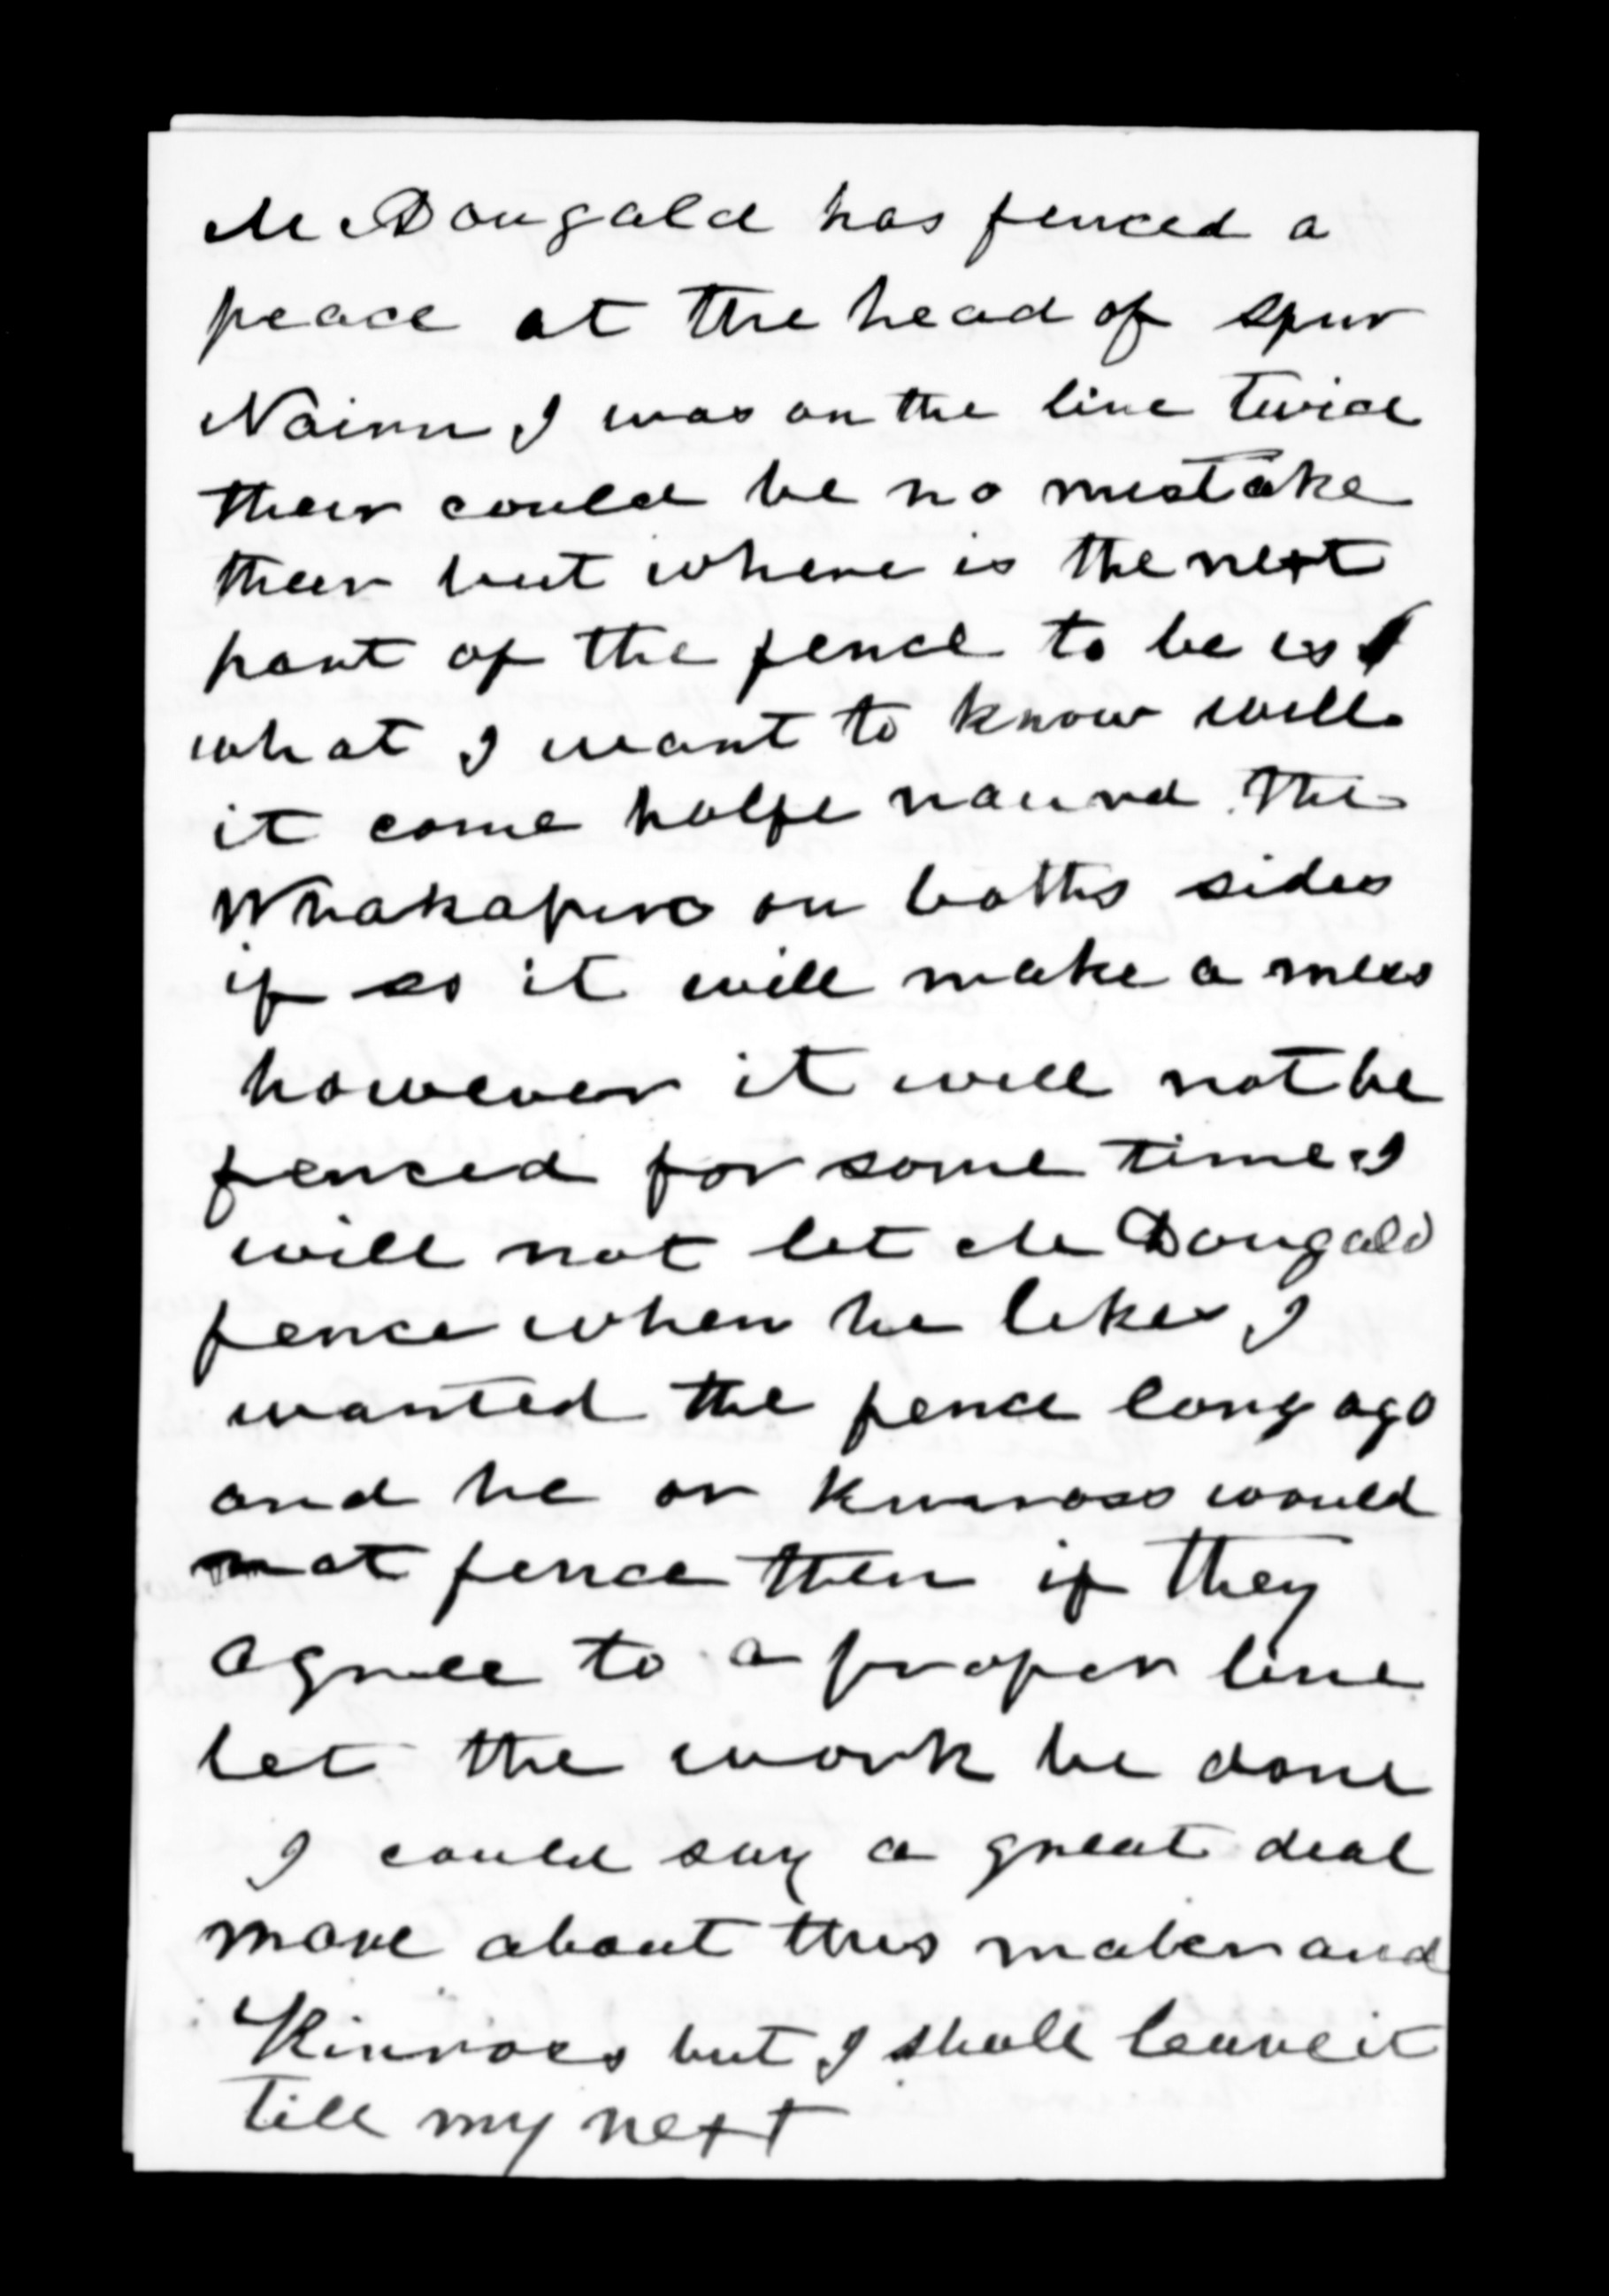 McDougald has fenced a
peace at the head of spur
Nairn I was on the line twice
their could be no mistake
their but where is the next
part of the fence to be is
what I want to know will
it come halfe round the
Whakapiro on boths sides
if so it will make a mess
however it will not be
fenced for some time I
will not let McDougald
fence when he likes I
wanted the fence long ago
and he or Kinross would
not fence then if they
agree to a proper line
let the work be done
I could say a great deal
more about this mater and
Kinross but I shall leave it
till my next